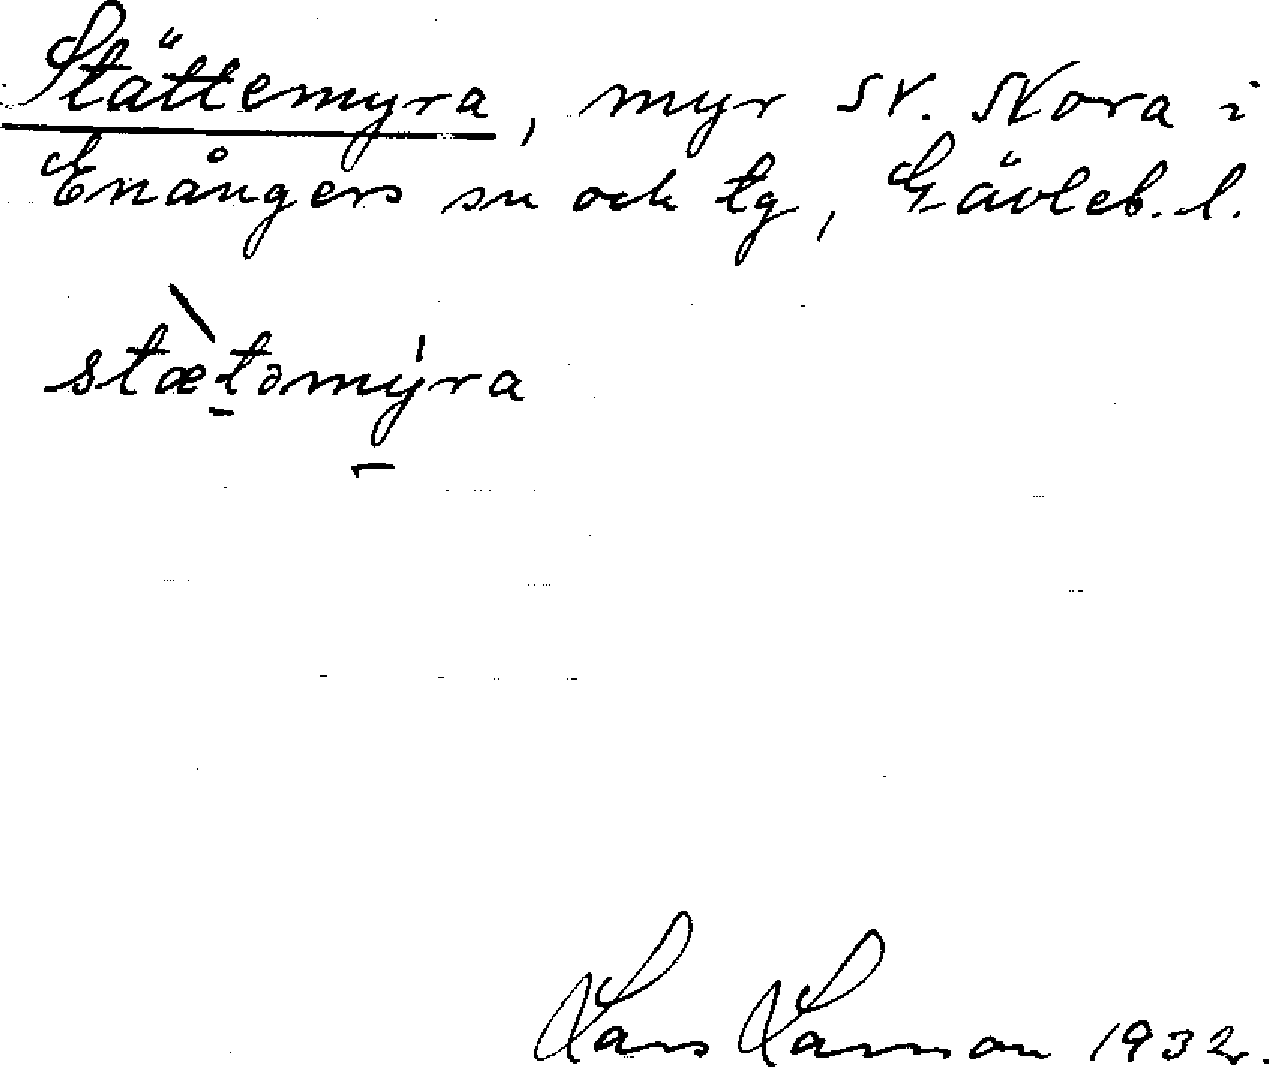 Stättemyra, myr SV. Nora i
Enångers sn och tg, Gävleb. l.
stæ̀təmýra
Lars Larsson 1932.